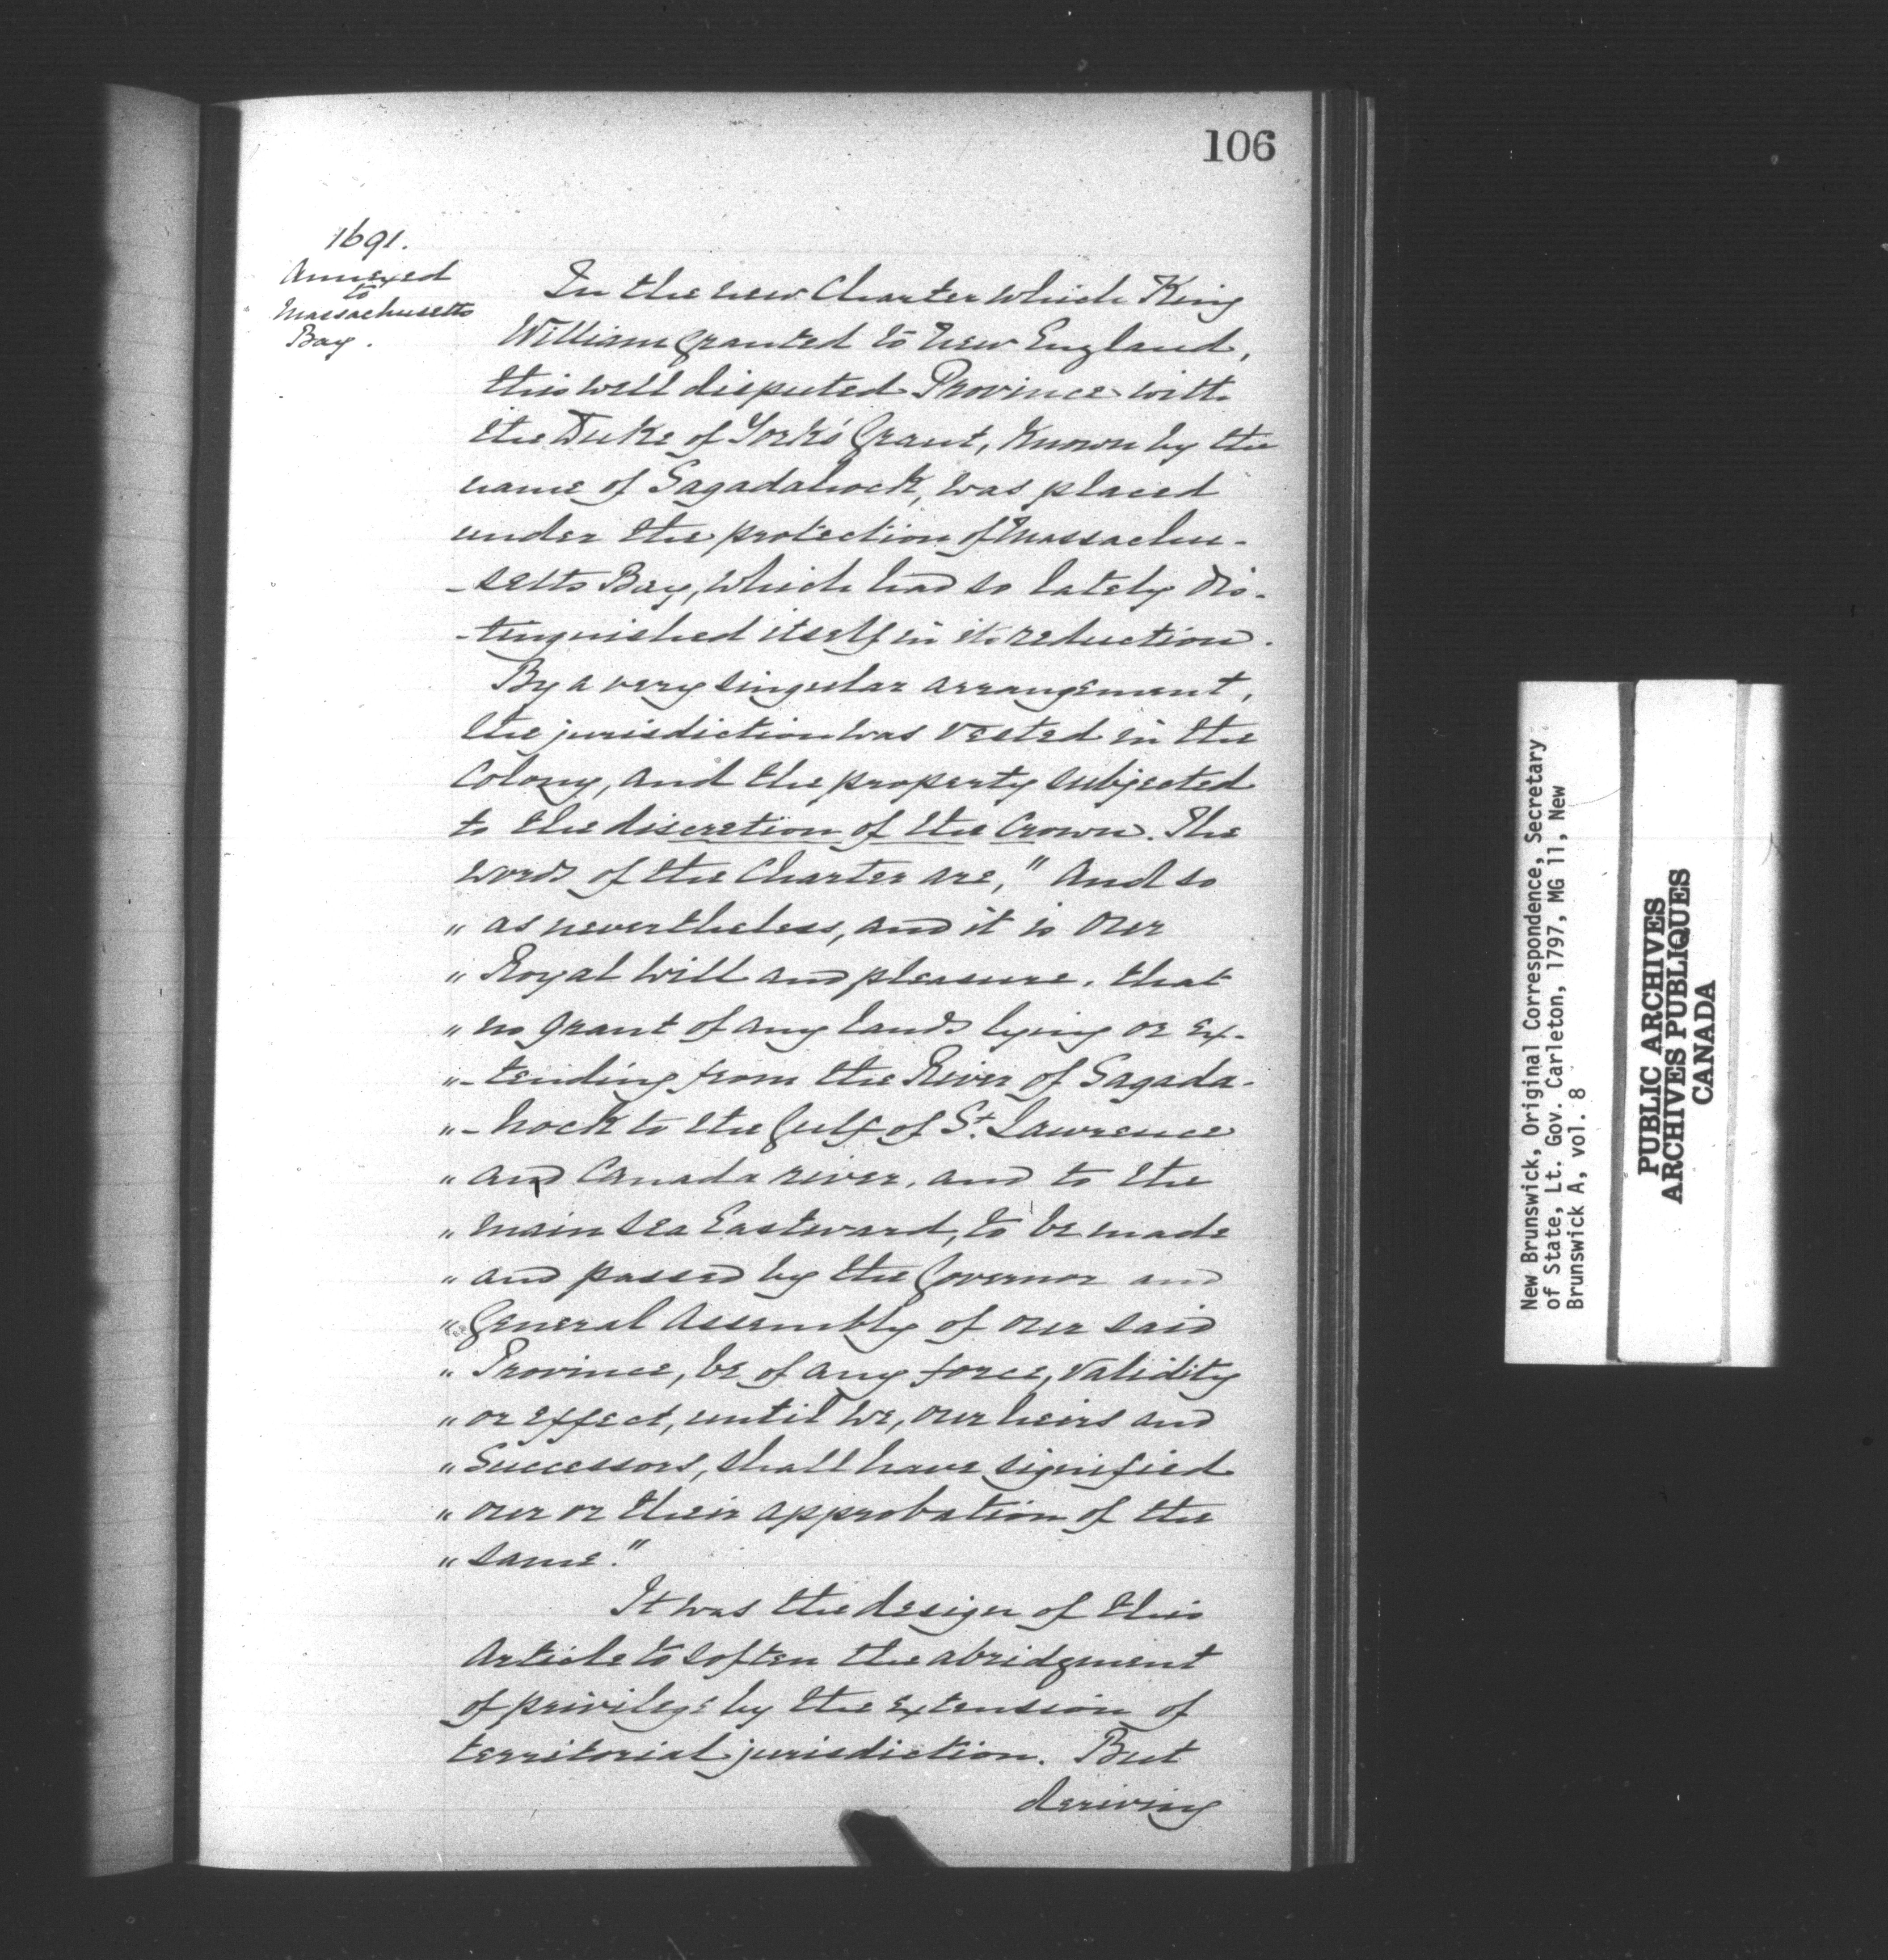 106
1691.
Annexed
to
Massachusetts
Bay.
In the new Charter which King
William granted to New England,
this well disputed Province with
the Duke of York's Grant, known by the
name of Sagadahock, was placed
under the protection of Massachu-
-setts Bay, which had so lately dis-
-tinguished itself in its reduction.
By a very singular arrangement,
the jurisdiction was vested in the
Colony, and the property subjected
to the discretion of the Crown. The
words of the Charter are, " And so
" as nevertheless, and it is our
" Royal Will and pleasure, that
" no grant of any lands lying or ex-
"-tending from the River of Sagada-
"-hock to the Gulf of St. Lawrence
" and Canada river, and to the
" main Sea Eastward, to be made
" and passed by the Governor and
" General Assembly of our said
" Province, be of any force, validity
" or effect, until we, our heirs and
" Successors, shall have signified
" our or their approbation of the
" same."
It was the design of this
Article to soften the abridgment
of privilege by the extension of
territorial jurisdiction. But
deriving
New Brunswick, Original Correspondence, Secretary
of State, Lt. Gov. Carleton, 1797, MG 11, New
Brunswick A, vol. 8
PUBLIC ARCHIVES
ARCHIVES PUBLIQUES
CANADA